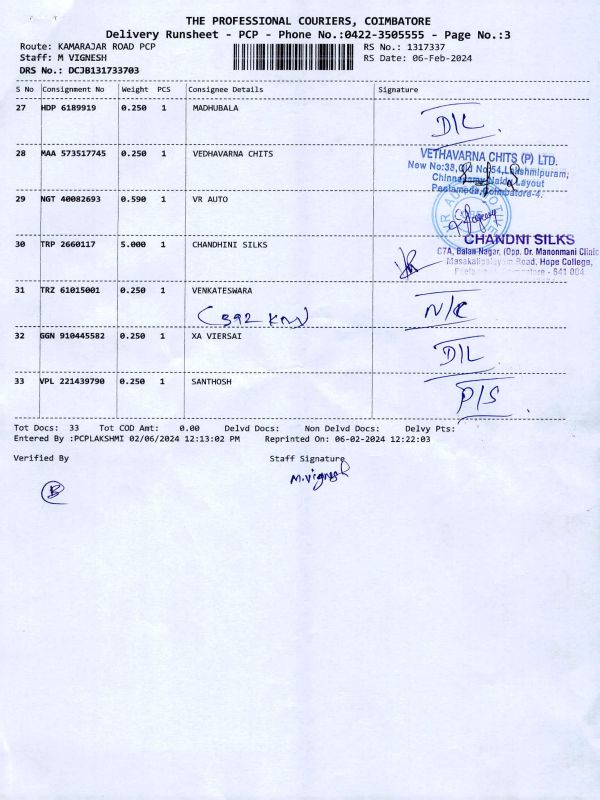 THE PROFESSIONAL COURIERS, COIMBATORE
Delivery Runsheet - PCP - Phone No.:0422-3505555 - Page No.:3
Route: KAMARAJAR ROAD PCP RS No.: 1317337
Staff: M VIGNESH RS Date: 06-Feb-2024
DRS No.: DCJB131733703
S No Consignment No Weight PCS Consignee Details Signature
27 HDP 6189919 0.250 1 MADHUBALA D/L
28 MAA 573517745 0.250 1 VEDHAVARNA CHITS
VETHAVARNA CHITS (P) LTD.
New No:38, Old No:54, Lakshmipuram,
Chinnasamy Naidu Layout
Peelamedu, Coimbatore-4.
29 NGT 40082693 0.590 1 VR AUTO
VR AUTO
30 TRP 2660117 5.000 1 CHANDHINI SILKS
CHANDNI SILKS
C7A, Balan Nagar, (Opp. Dr. Manonmani Clinic
Masakalipalayam Road, Hope College,
Peelamedu, Coimbatore - 641 004
31 TRZ 61015001 0.250 1 VENKATESWARA N/C
(392 KM)
32 GGN 910445582 0.250 1 XA VIERSAI D/L
33 VPL 221439790 0.250 1 SANTHOSH P/S
Tot Docs: 33 Tot COD Amt: 0.00 Delvd Docs: Non Delvd Docs: Delvy Pts:
Entered By :PCPLAKSHMI 02/06/2024 12:13:02 PM Reprinted On: 06-02-2024 12:22:03
Verified By Staff Signature
M.Vignesh